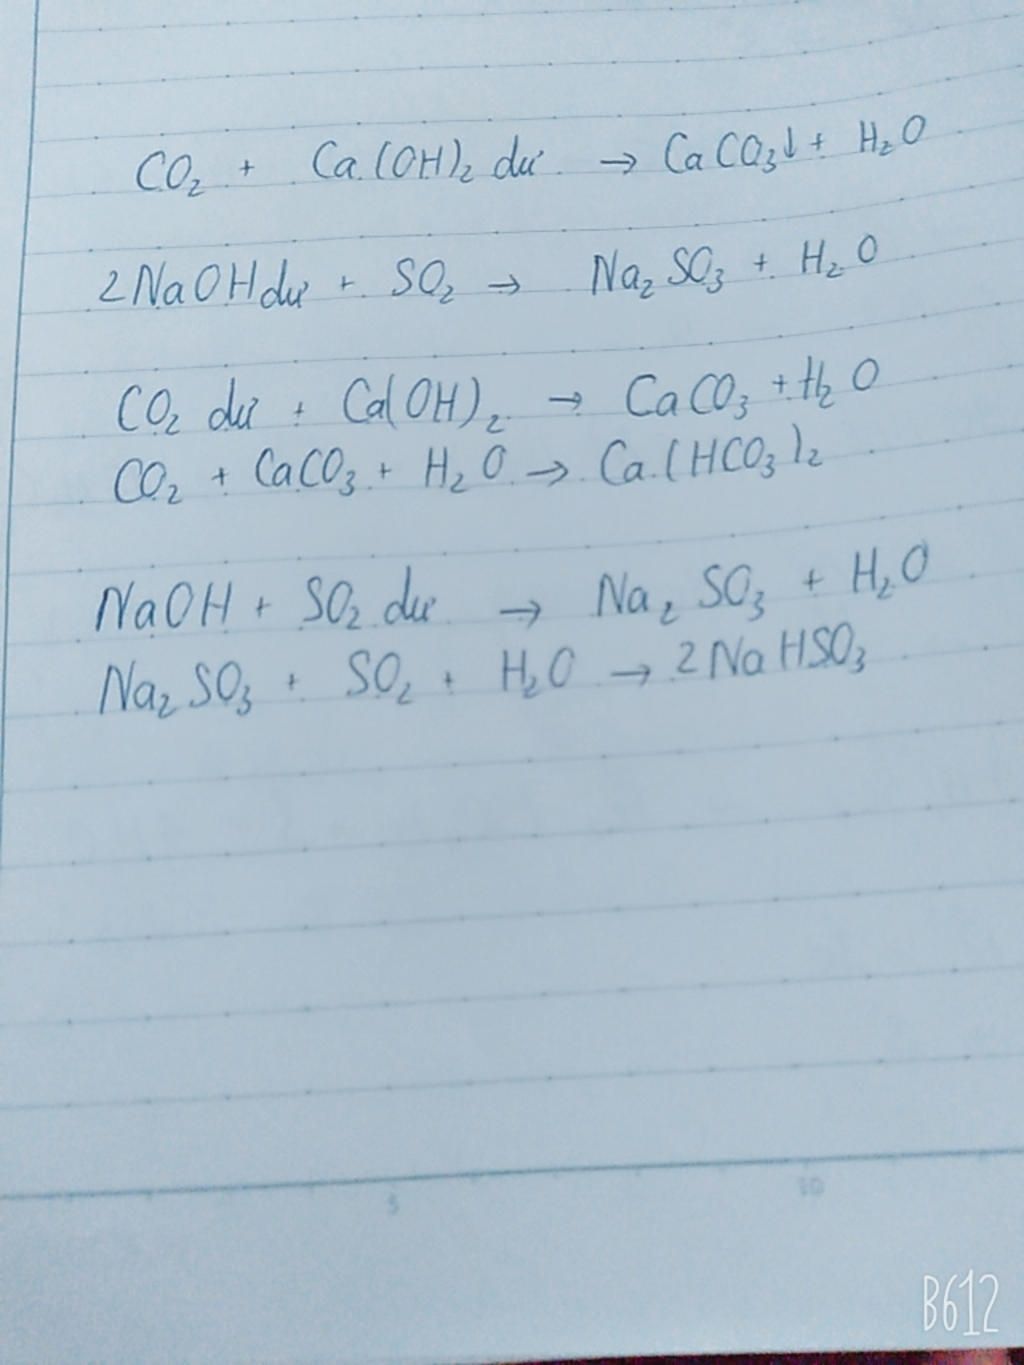 CO₂ + Ca(OH)₂ dư → CaCO₃↓ + H₂O
2NaOH dư + SO₂ → Na₂SO₃ + H₂O
CO₂ dư + Ca(OH)₂ → CaCO₃ + H₂O
CO₂ + CaCO₃ + H₂O → Ca(HCO₃)₂
NaOH + SO₂ dư → Na₂SO₃ + H₂O
Na₂SO₃ + SO₂ + H₂O → 2NaHSO₃
5 10
B612